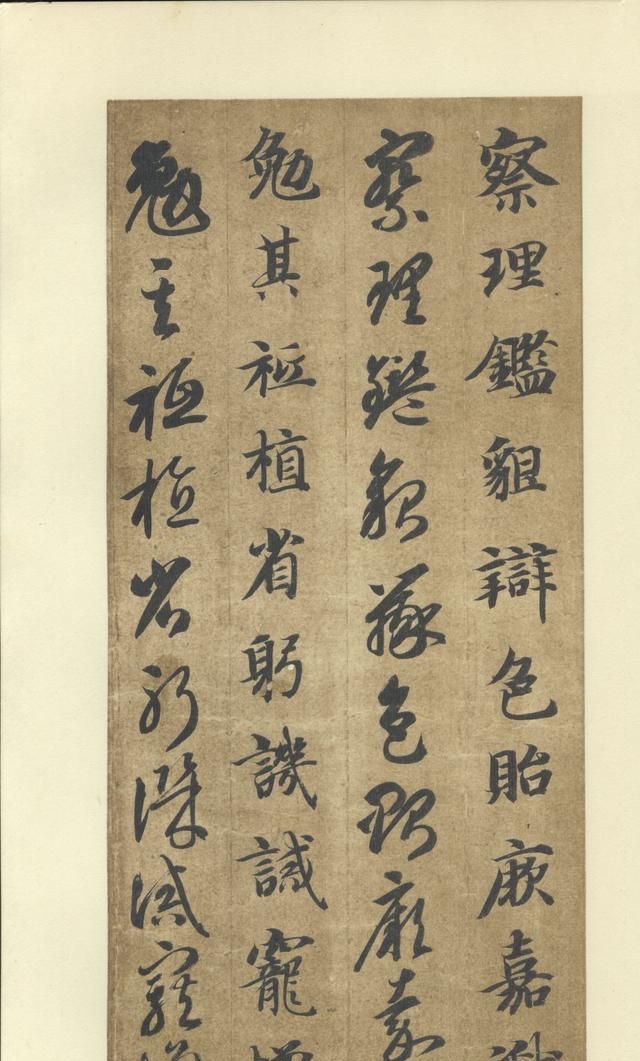 察理鑑貌辯色貽厥嘉猷
察理鑑貌辯色貽厥嘉
勉其祗植省躬譏誡寵增
勉其祗植省躬譏誡寵增